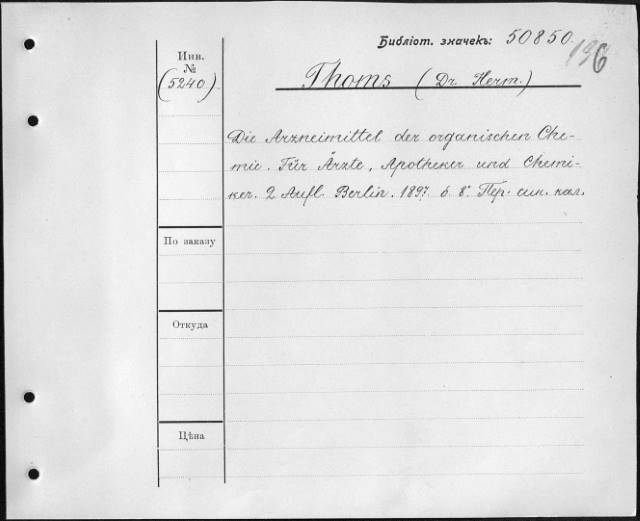 Библіот. значекъ: 50850.
196
Инв.
№
(5240)
Thoms (Dr. Herm.)
Die Arzneimittel der organischen Che-
mie. Für Ärzte, Apotheker und Chemi-
ker. 2 Aufl. Berlin. 1897. б 8°. Пер. син. кал.
По заказу
Откуда
Цѣна